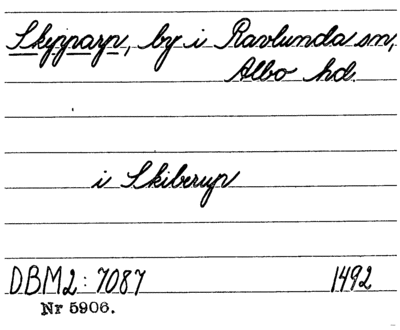 Skepparp, by i Ravlunda sn,
Albo hd.
i Skiberup
DBM2: 7087 1492
Nr 5906.